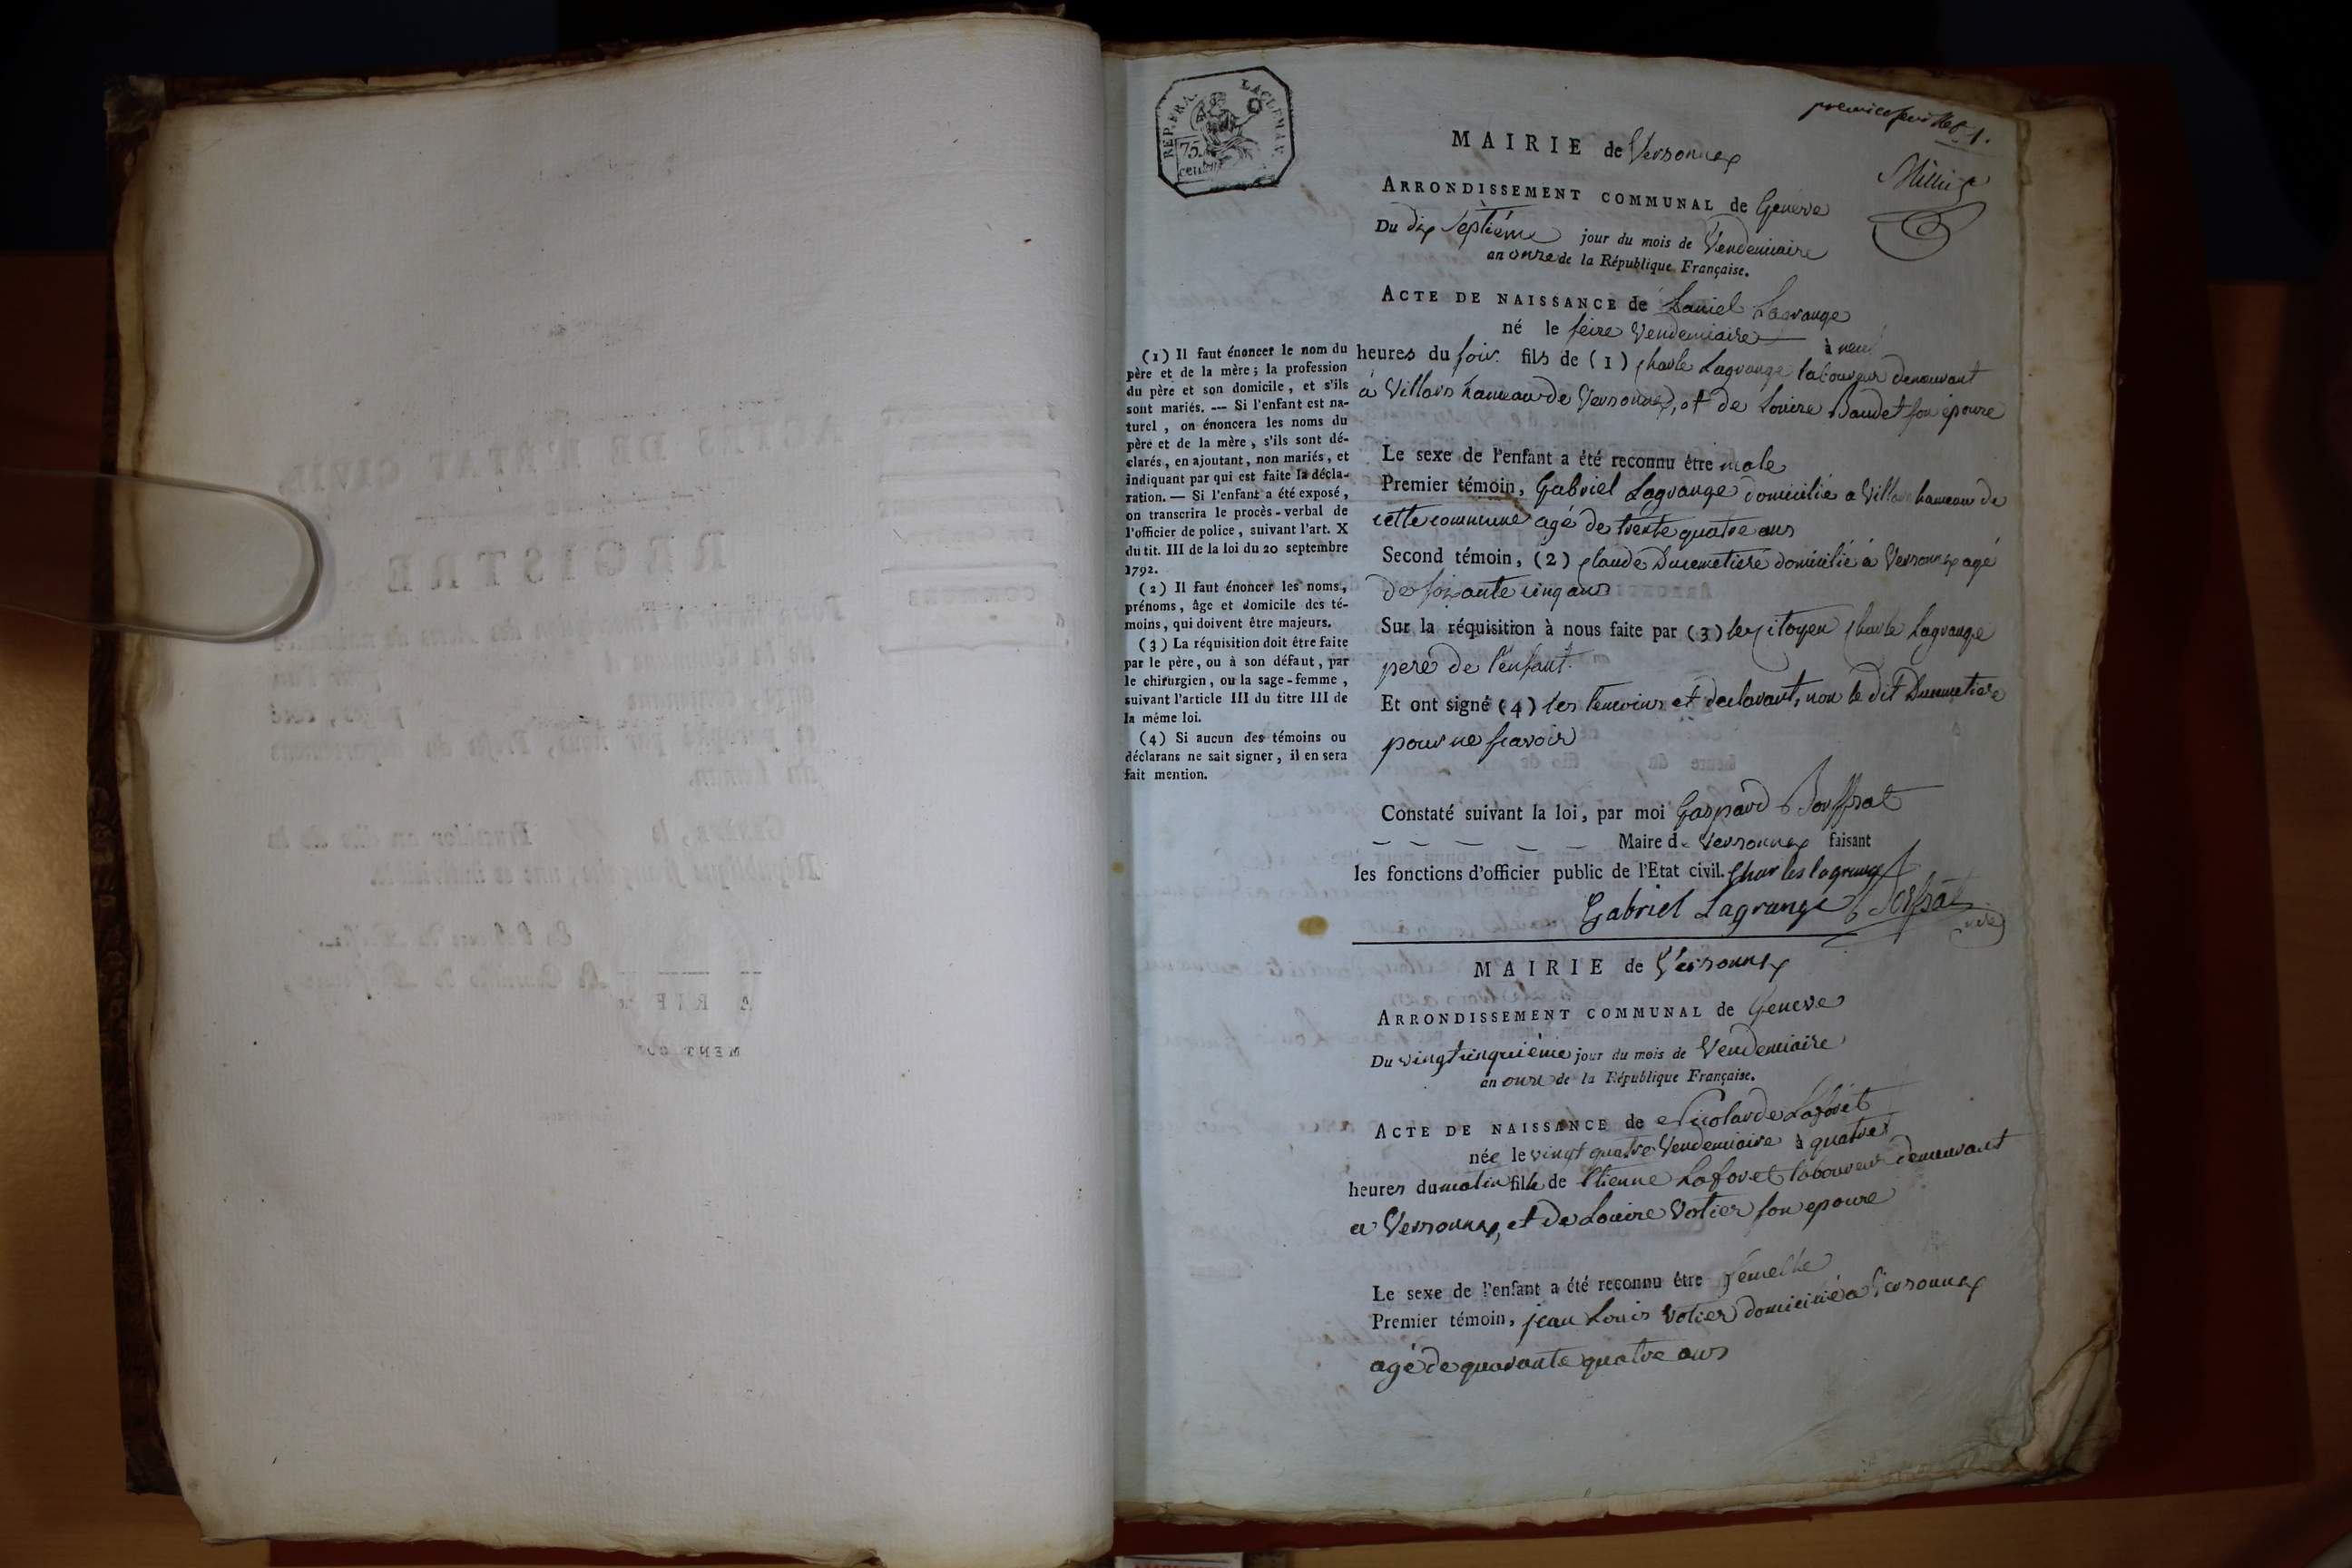 REP. FRA.
75.
cent.
premier feuillet 1.
MAIRIE de Versonnex
ARRONDISSEMENT COMMUNAL de Genève
Du dix Septiéme jour du mois de Vendemiaire
an onze de la République Française.
ACTE DE NAISSANCE de Daniel Lagrange
né le seize Vendemiaire à neuf
heures du soir fils de (1) Charle Lagrange laboureur demeurant
à Villars hameau de Versonnex, et de Louise Baudet son épouse
Le sexe de l'enfant a été reconnu être male
Premier témoin, Gabriel Lagrange domicilié a Villars hameau de
cette commune agé de trente quatre ans
Second témoin, (2) Claude Ducimetiere domicilié à Versonnex agé
de soixante cinq ans
Sur la réquisition à nous faite par (3) le Citoyen Charle Lagrange
pere de l'enfant.
Et ont signé (4) les temoins et declarant, non le dit Ducimetiere
pour ne scavoir
Constaté suivant la loi, par moi Gaspard
Maire de Versonnex faisant
les fonctions d'officier public de l'Etat civil. Charles lagrange
Gabriel Lagrange
(1) Il faut énoncer le nom du
père et de la mère ; la profession
du père et son domicile, et s'ils
sont mariés. — Si l'enfant est na-
turel, on énoncera les noms du
père et de la mère, s'ils sont dé-
clarés, en ajoutant, non mariés, et
indiquant par qui est faite la décla-
ration. — Si l'enfant a été exposé,
on transcrira le procès-verbal de
l'officier de police, suivant l'art. X
du tit. III de la loi du 20 septembre
1792.
(2) Il faut énoncer les noms,
prénoms, âge et domicile des té-
moins, qui doivent être majeurs.
(3) La réquisition doit être faite
par le père, ou à son défaut, par
le chirurgien, ou la sage-femme,
suivant l'article III du titre III de
la même loi.
(4) Si aucun des témoins ou
déclarans ne sait signer, il en sera
fait mention.
MAIRIE de Versonnex
ARRONDISSEMENT COMMUNAL de Geneve
Du vingt cinquiéme jour du mois de Vendemiaire
an onze de la République Française.
ACTE DE NAISSANCE de Nicolarde Laforêt
née le vingt quatre Vendemiaire à quatre
heures du matin fille de Etienne Laforet laboureur demeurant
a Versonnex, et de Louise Votier son epouse
Le sexe de l'enfant a été reconnu être femelle
Premier témoin, jean Louis Votier domicilié a Versonnex
agé de quarante quatre ans